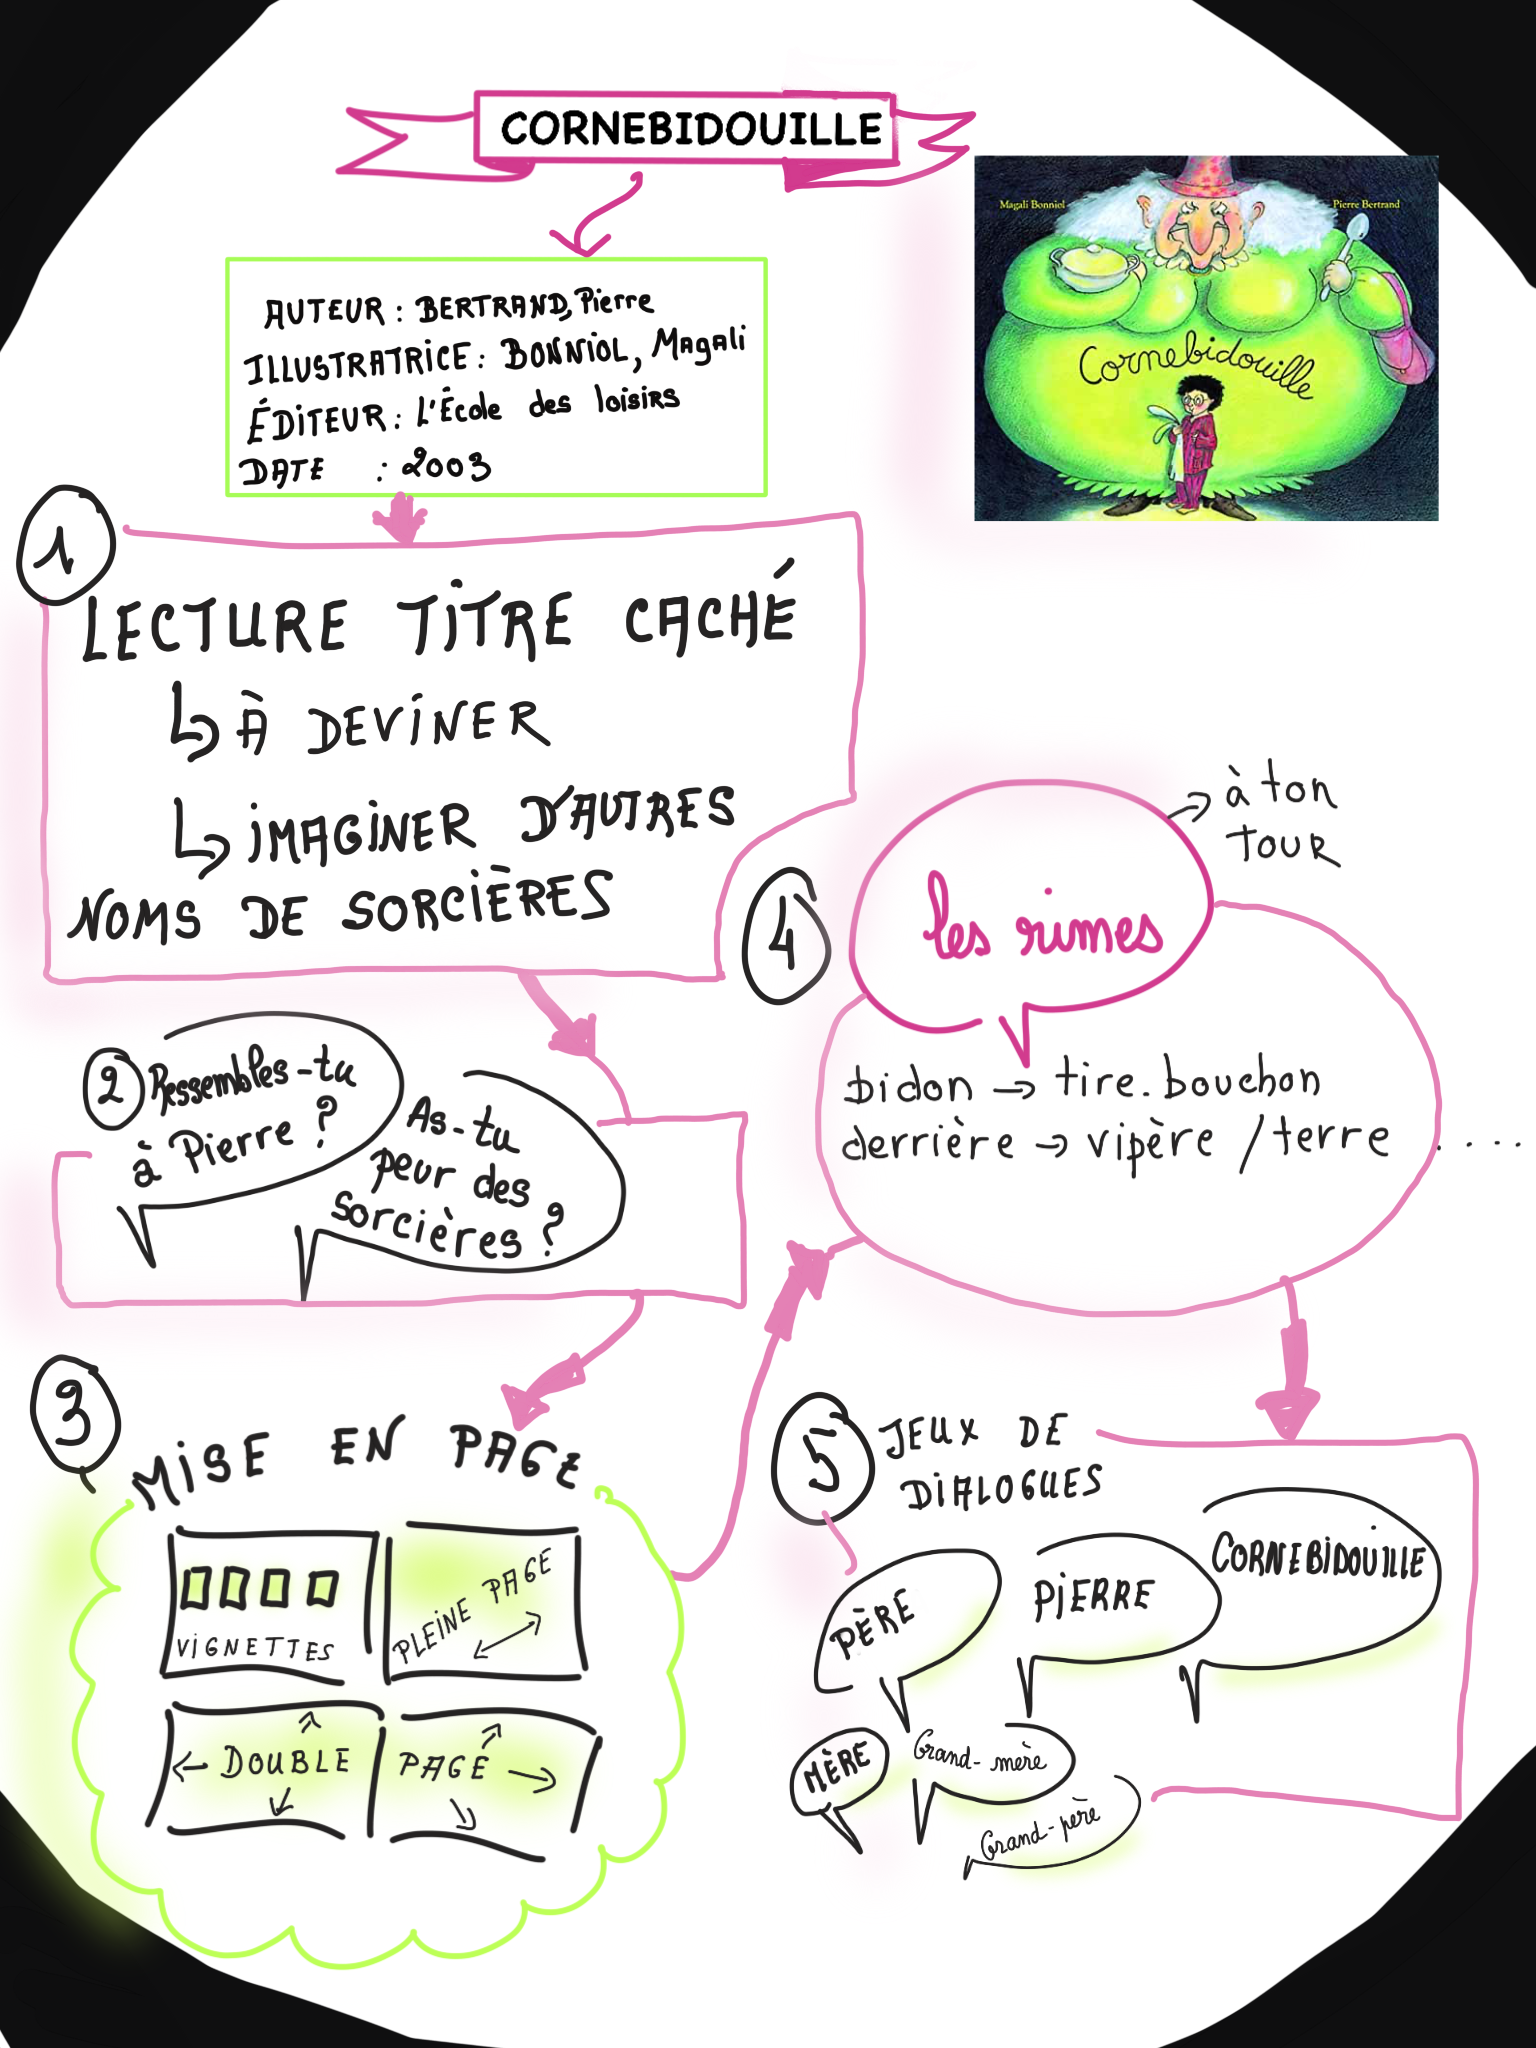 CORNEBIDOUILLE
Magali Bonniol
Pierre Bertrand
Cornebidouille
AUTEUR : BERTRAND, Pierre
ILLUSTRATRICE : BONNIOL, Magali
ÉDITEUR : L'École des loisirs
DATE : 2003
1
LECTURE TITRE CACHÉ
À DEVINER
IMAGINER D'AUTRES
NOMS DE SORCIÈRES
2 Ressembles-tu
à Pierre ?
As-tu
peur des
sorcières ?
3
MISE EN PAGE
VIGNETTES
PLEINE PAGE
DOUBLE PAGE
4
les rimes
→ à ton
TOUR
bidon → tire.bouchon
derrière → vipère / terre ....
5
JEUX DE
DIALOGUES
PÈRE
PIERRE
CORNEBIDOUILLE
MÈRE
Grand-mère
Grand-père